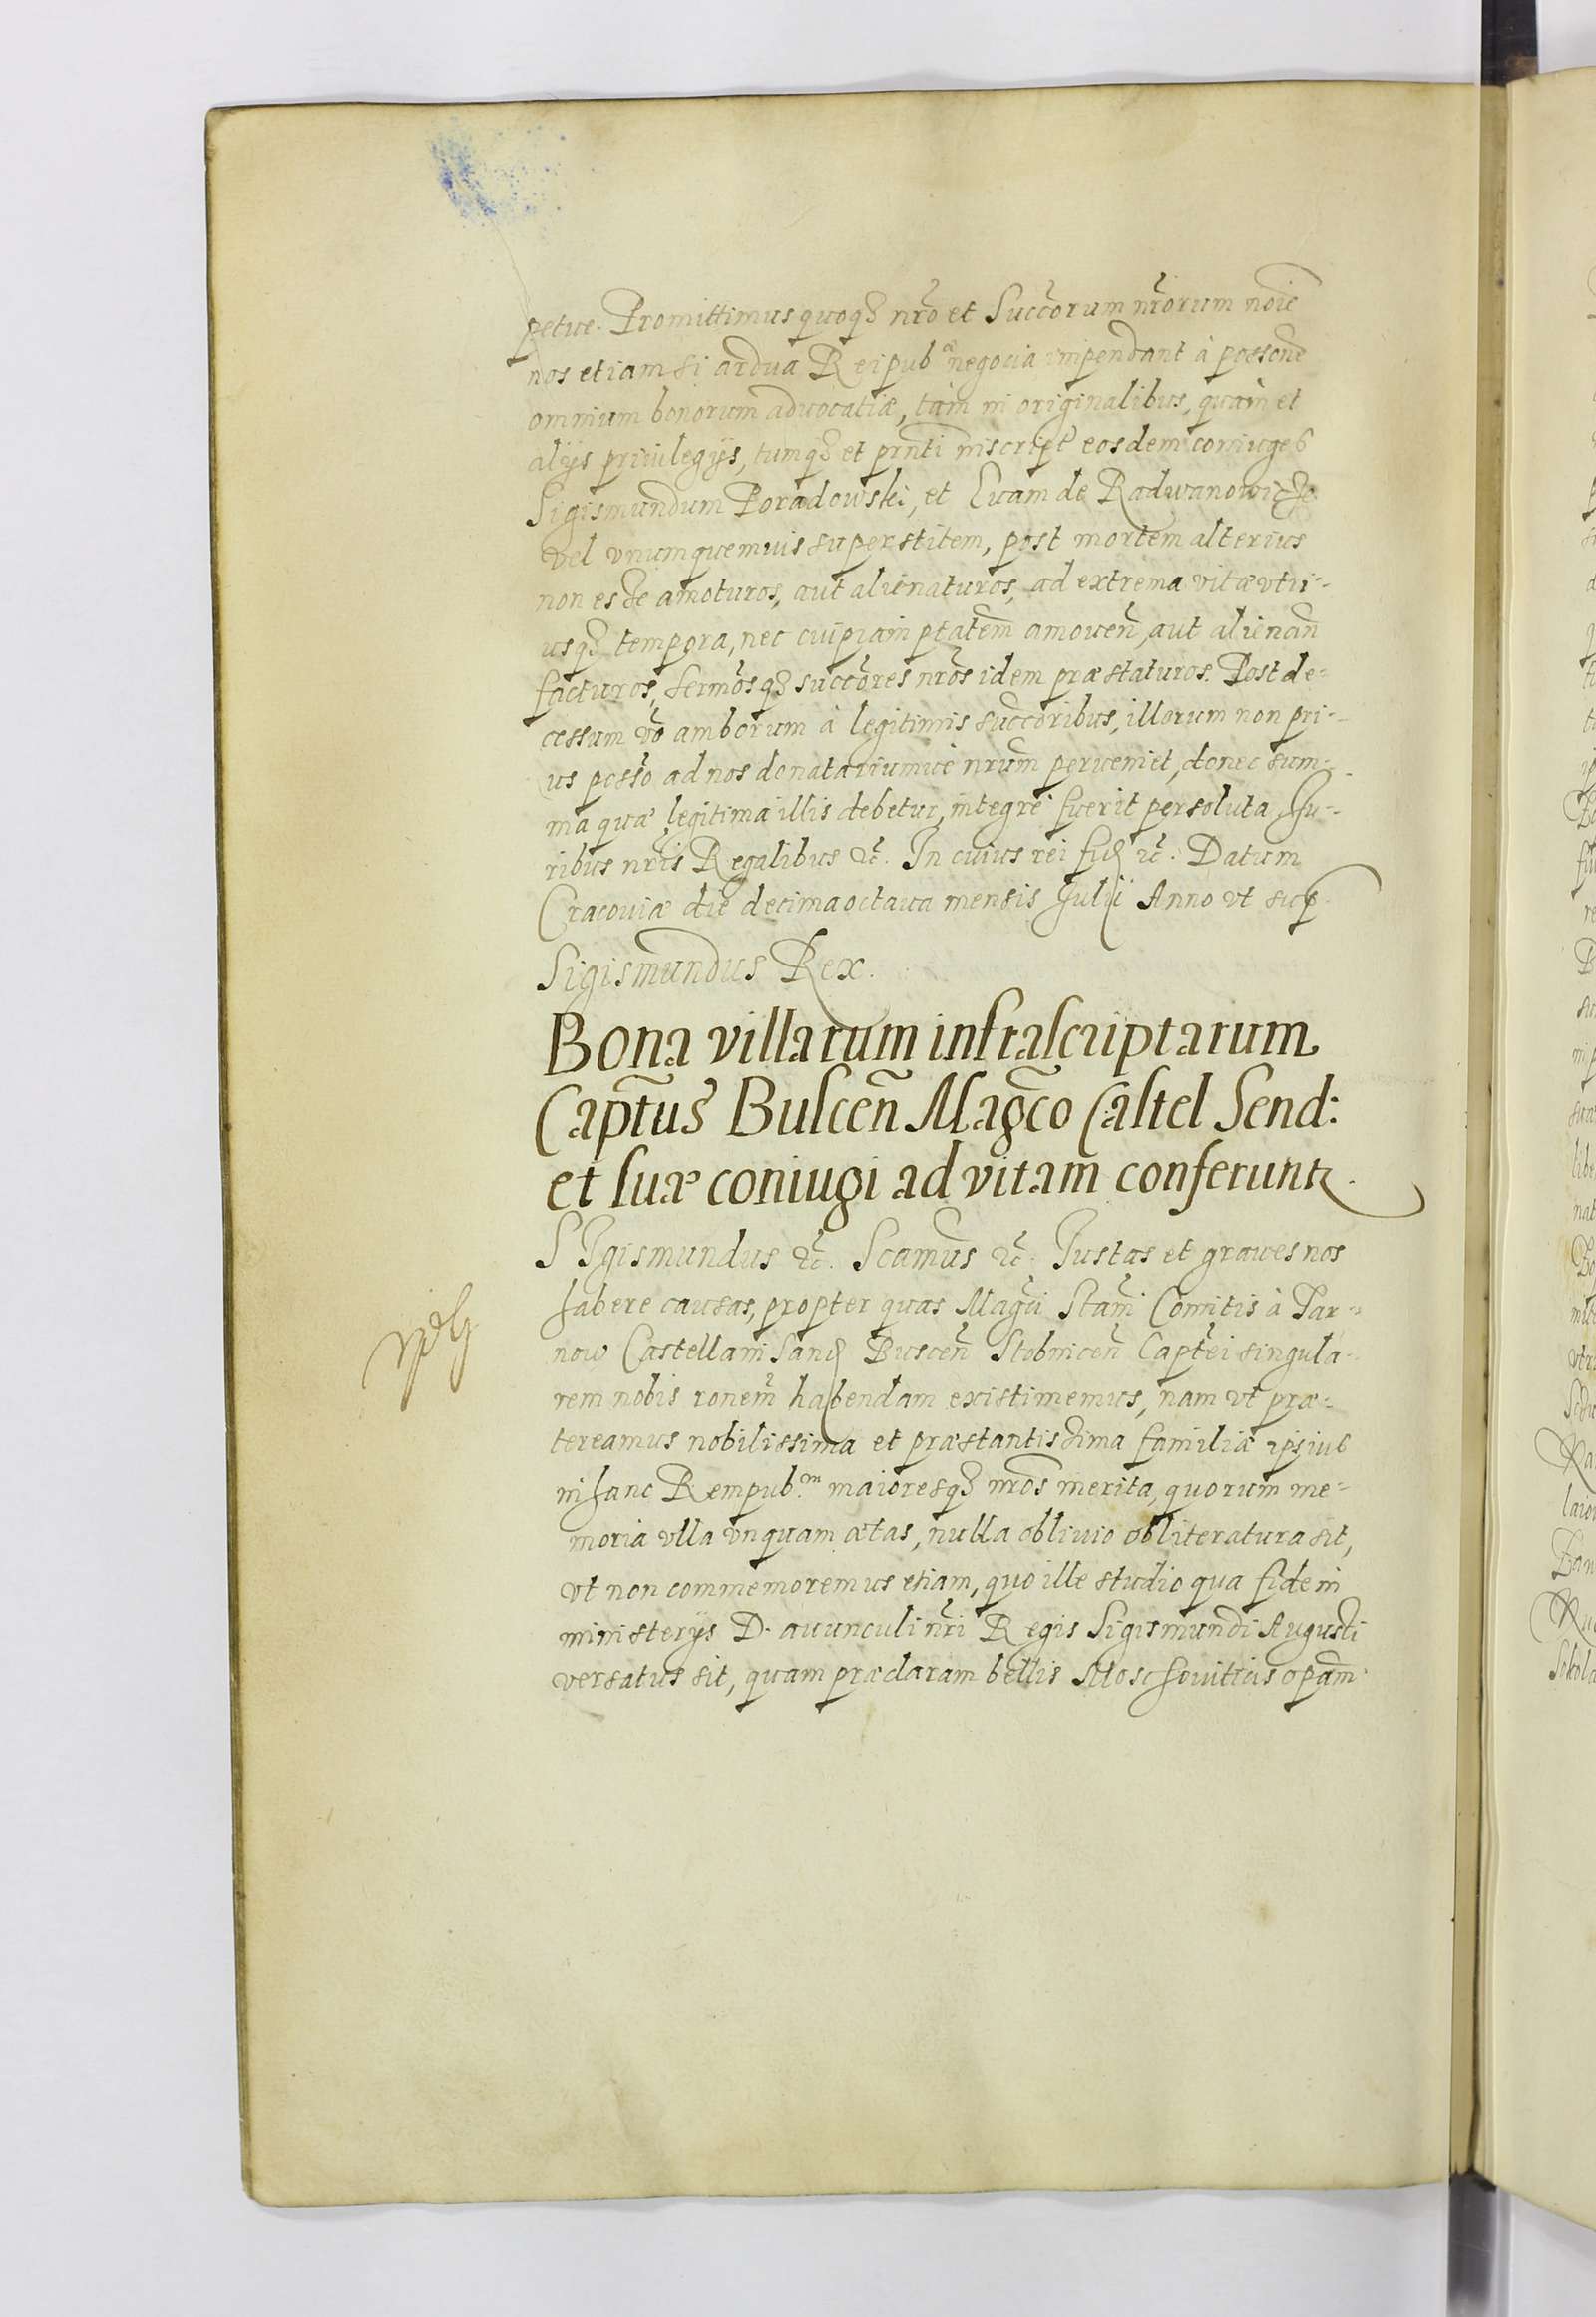 petue. Promittimus quoqȝ nrõ et Succõrum nrõrum noĩe
nos etiam si ardua Reipub.ͣᵉ negocia impendant à possone
omnium bonorum aduocatiæ, tàm in originalibus, quàm et
alijs priuilegijs, tumqȝ et prñti inscript eosdem coniuges
Sigismundum Poradowski, et Euam de Radwanowicze
vel vnumquemuis superstitem, post mortem alterius
non esse amoturos, aut alienaturos, ad extrema vitæ vtri-
usqȝ tempora, nec cuipiam ptatem amouen̄, aut alienan̄
facturos, sermõsqȝ succõres nrõs idem præstaturos. Post de-
cessum võ amborum à legitimis succõribus, illorum non pri-
us posso ad nos donatariumuè nrum perueniet, donec sum-
ma quæ legitima illis debetur, integrè fuerit persoluta, Ju-
ribus nris Regalibus etc. In cuius rei fid etc. Datum
Cracouiæ die decima octaua mensis Julij Anno vt sup
Sigismundus Rex.
Bona villarum infrascriptarum
Captus Buscen̄ Magco Castel Send:
et suæ coniugi ad vitam conferuntr.
SIgismundus etc. Scamus etc. Iustas et graues nos
habere causas, propter quas Magci Stani Comitis à Tar-
now Castellani Sand Buscen̄ Stobnicen̄ Captei singula-
rem nobis ronem habendam existimemus, nam vt præ-
tereamus nobilissima et præstantissima familiæ ipsius
in hanc Rempub.ᵐ maioresqȝ nros merita, quorum me-
moria vlla vnquam ætas, nulla obliuio obliteratura sit,
vt non commemoremus etiam, quo ille studio qua fide in
ministerijs D. auunculi nri Regis Sigismundi Augusti
versatus sit, quam præclaram bellis Moschouiticis opam